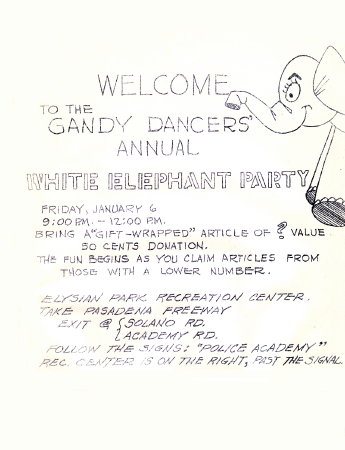 WELCOME
TO THE
GANDY DANCERS'
ANNUAL
WHITE ELEPHANT PARTY
FRIDAY, JANUARY 6
9:00 P.M. - 12:00 P.M.
BRING A "GIFT-WRAPPED" ARTICLE OF ? VALUE
50 CENTS DONATION.
THE FUN BEGINS AS YOU CLAIM ARTICLES FROM
THOSE WITH A LOWER NUMBER.
ELYSIAN PARK RECREATION CENTER.
TAKE PASADENA FREEWAY
EXIT @ { SOLANO RD.
ACADEMY RD.
FOLLOW THE SIGNS: "POLICE ACADEMY"
REC. CENTER IS ON THE RIGHT, PAST THE SIGNAL.